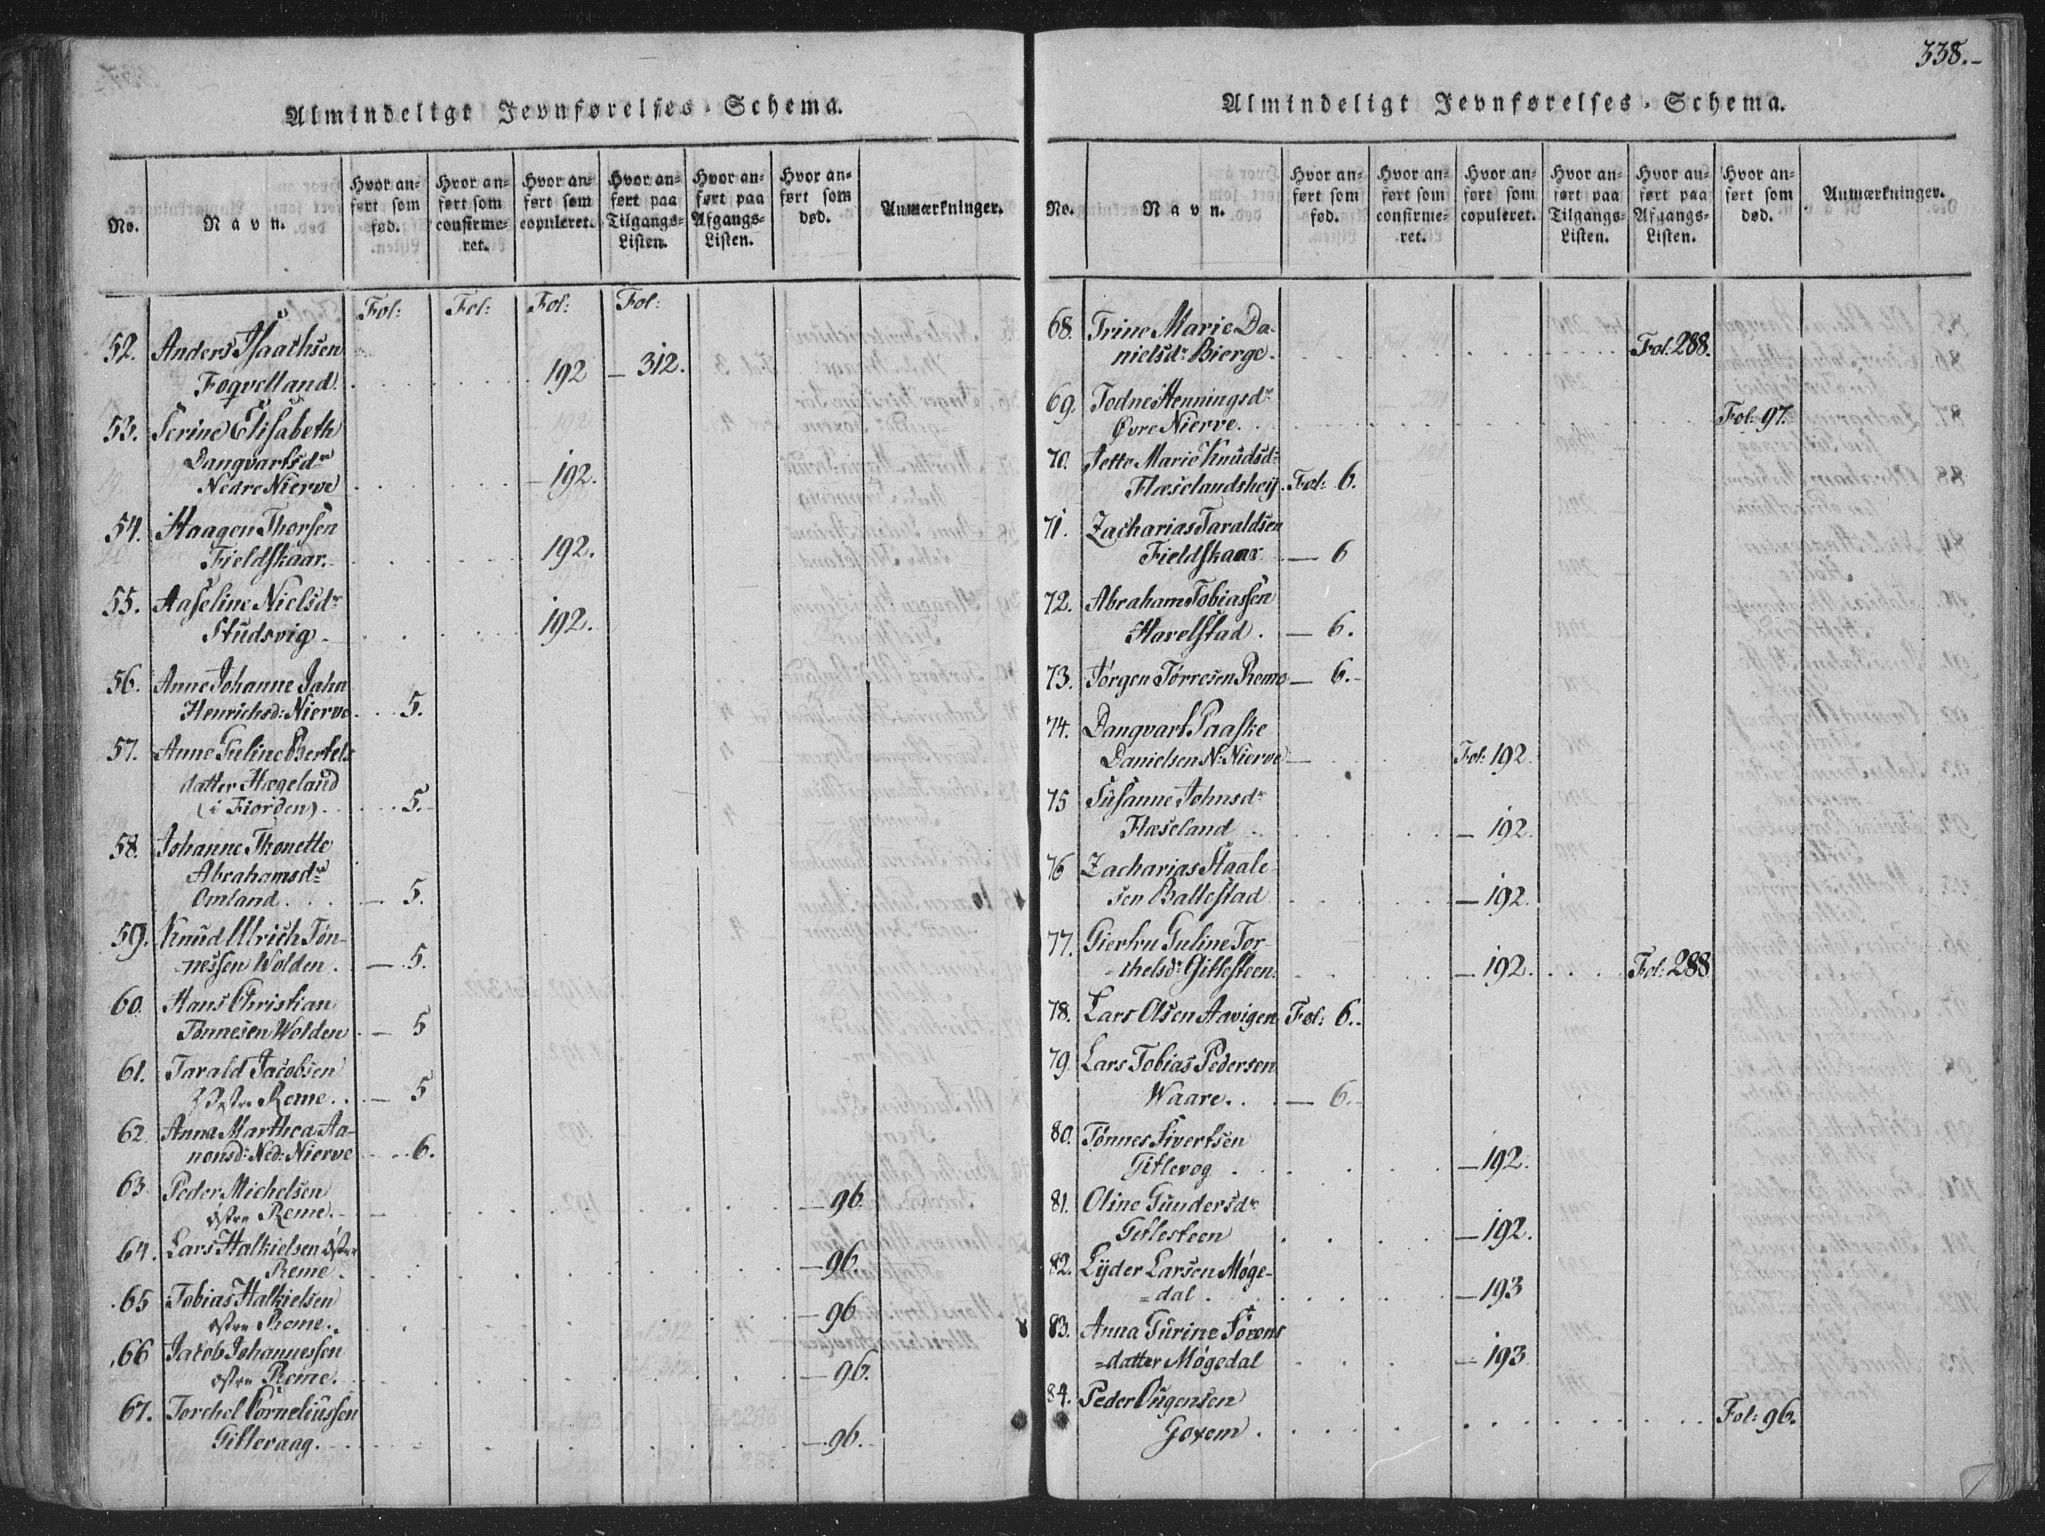 338.
Almindeligt Jevnførelses-Schema.
No.
Navn.
Hvor anført som fød.
Hvor anført som confirmeret.
Hvor anført som copuleret.
Hvor anført paa Tilgangs-Listen.
Hvor anført paa Afgangs-Listen.
Hvor anført som død.
Anmærkninger.
Fol: Fol: Fol: Fol:
52. Anders Isaachsen
Foqvelland. 192 – 312.
53. Serine Elisabeth
Dangvartsdr
Nedre Nierve – 192.
54. Haagen Thorsen
Fieldskaar. 192.
55. Aaseline Nielsdr
Studsvig. 192.
56. Anne Johanne Jahn
Henrichsd: Nierve 5.
57. Anne Guline Bertels
datter Hægeland
(i Fiorden) 5.
58. Johanne Thonette
Abrahamsdr
Omland – 5.
59. Knud Ulrich Tøn-
nessen Wolden – 5.
60. Hans Christian
Tønnesen Wolden – 5
61. Tarald Jacobsen
Østre Reme – 5
62. Anna Marthea Aa-
nonsd: Ned: Nierve 6.
63. Peder Michelsen
østre Reme. – 96.
64. Lars Halkielsen østre
Reme – 96.
65 Tobias Halkielsen
østre Reme. – 96.
66 Jacob Johannessen
østre Reme. – 96.
67. Torchel Corneliussen
Gitleraag. – 96.
Almindeligt Jevnførelses-Schema.
No.
Navn.
Hvor anført som fød.
Hvor anført som confirmeret.
Hvor anført som copuleret.
Hvor anført paa Tilgangs-Listen.
Hvor anført paa Afgangs-Listen.
Hvor anført som død.
Anmærkninger.
68. Trine Marie Da-
nielsdr Bierge. Fol: 288.
69. Todne Henningsdr
Øvre Nierve. Fol: 97.
70. Jette Marie Knudsdr
Flæselandsheÿ. Fol: 6.
71. Zacharias Taraldsen
Fieldskaar – 6
72. Abraham Tobiassen
Harelstad – 6.
73. Jørgen Tørresen Reme – 6.
74. Dangvart Paaske
Danielsen N: Nierve – Fol: 192
75 Susanne Johnsdr
Flæseland – 192.
76 Zacharias Staale-
sen Ballestad – 192.
77. Giertru Guline Tor-
kelsd: Gitlesteen. – 192. Fol: 288
78. Lars Olsen Aavigen Fol: 6.
79. Lars Tobias Pedersen
Waare. – 6.
80. Tønnes Sivertsen
Gitlevog – 192.
81. Oline Gundersdr
Gitlesteen – 192.
82. Lÿder Larsen Møge-
=dal – 193
83. Anna Turine Sørens
=datter Møgedal – 193
84. Peder Ougensen
Goxem. Fol: 96.